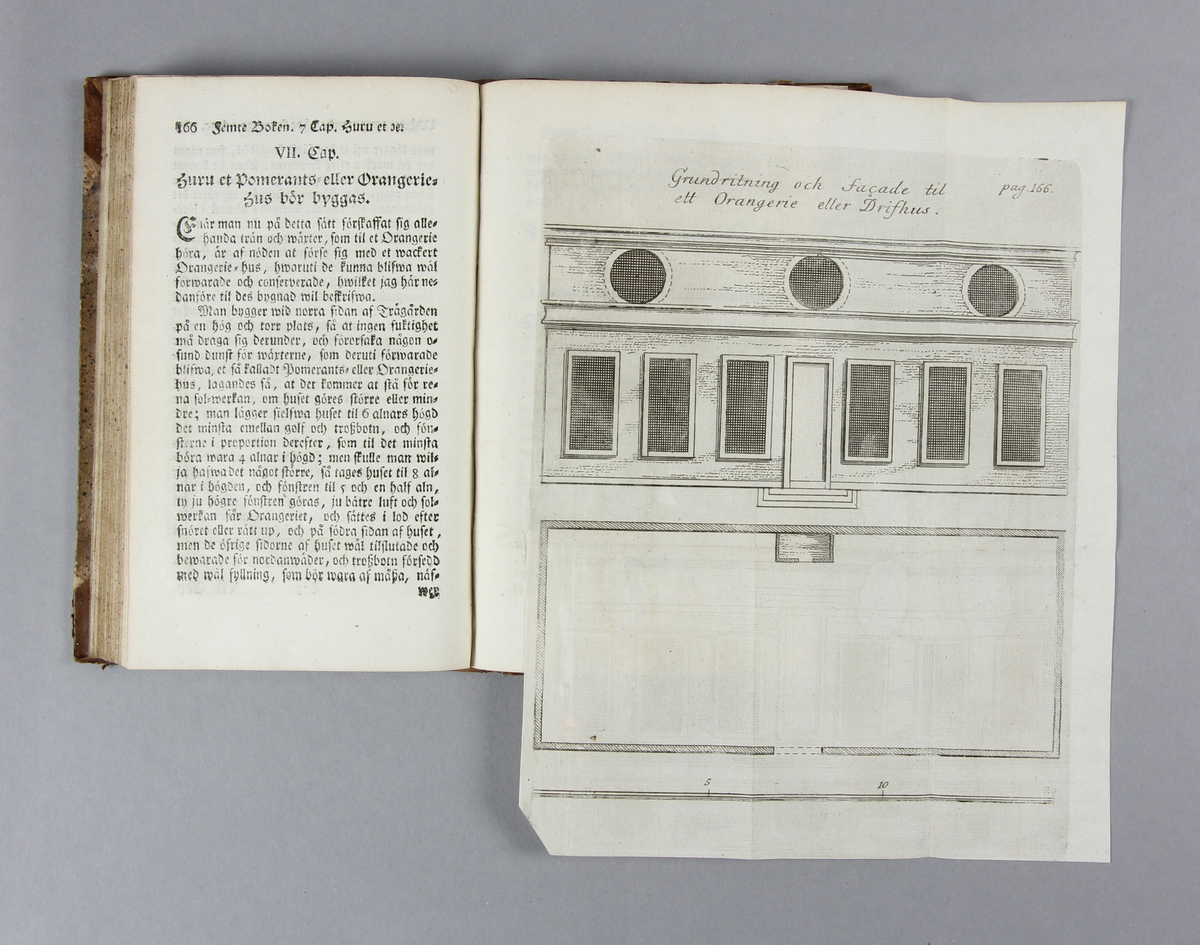 166 Femte Boken. 7 Cap. Huru et ꝛc.
VII. Cap.
Huru et Pomerants- eller Orangerie-
Hus bör byggas.
Enär man nu på detta sätt förskaffat sig alle-
handa trän och wäxter, som til et Orangerie
höra, är af nöden at förse sig med et wackert
Orangerie-hus, hwaruti de kunna blifwa wäl
förwarade och conserverade, hwilket jag här ne-
danföre til des bygnad wil beskrifwa.
Man bygger wid norra sidan af Trägården
på en hög och torr plats, så at ingen fuktighet
må draga sig derunder, och förorsaka någon o-
sund dunst för wäxterne, som deruti förwarade
blifwa, et så kalladt Pomerants- eller Orangerie-
hus, lagandes så, at det kommer at stå för re-
na sol-werkan, om huset göres större eller min-
dre; man lägger sielfwa huset til 6 alnars högd
det minsta emellan golf och troßbotn, och fön-
sterne i proportion derefter, som til det minsta
böra wara 4 alnar i högd; men skulle man wil-
ja hafwa det något större, så tages huset til 8 al-
nar i högden, och fönstren til 5 och en half aln,
ty ju högre fönstren göras, ju bätre luft och sol-
werkan får Orangeriet, och sättes i lod efter
snöret eller rätt up, och på södra sidan af huset,
men de öfrige sidorne af huset wäl tilslutade och
bewarade för nordanwäder, och troßbotn försedd
med wäl fyllning, som bör wara af måßa, näf-
wer
Grundritning och façade til
ett Orangerie eller Drifhus.
pag. 166.
5 10